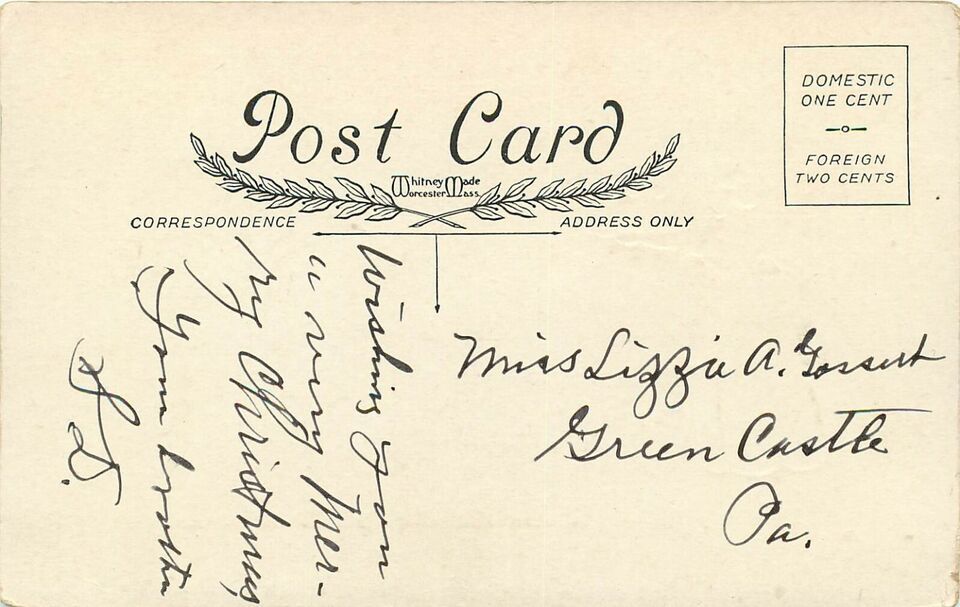 Post Card
Whitney Made
Worcester Mass.
DOMESTIC
ONE CENT
FOREIGN
TWO CENTS
CORRESPONDENCE
ADDRESS ONLY
Wishing you
a very Mer-
ry Christmas
Your brother
D.
Miss Lizzie A. Gossert
Green Castle
Pa.